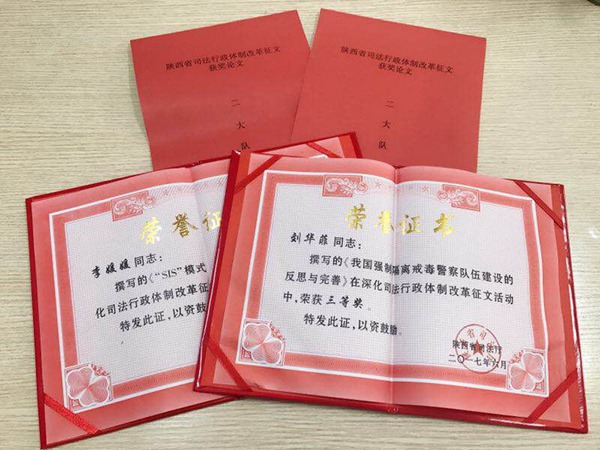 陕西省司法行政体制改革征文
获奖论文
二
大
队
陕西省司法行政体制改革征文
获奖论文
二
大
队
荣誉证
李媛媛同志：
撰写的《“SIS”模式
化司法行政体制改革征
特发此证，以资鼓
荣誉证书
刘华菲同志：
撰写的《我国强制隔离戒毒警察队伍建设的
反思与完善》在深化司法行政体制改革征文活动
中，荣获三等奖。
特发此证，以资鼓励。
陕西省司法厅
二〇一七年六月